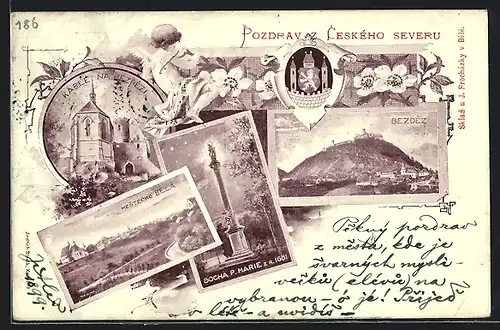 186
Pozdrav z Českého severu
KAPLE NA BEZDĚZI
BEZDĚZ
MĚSTEČKO BĚLÁ
SOCHA P. MARIE z r. 1681
Sklad u J. Procházky v Bělé.
Pěkný pozdrav
z města, kde je
švarných mysli-
večků (elévů) na
vybranou – ó je! Přijeď
v létě – a uvidíš –